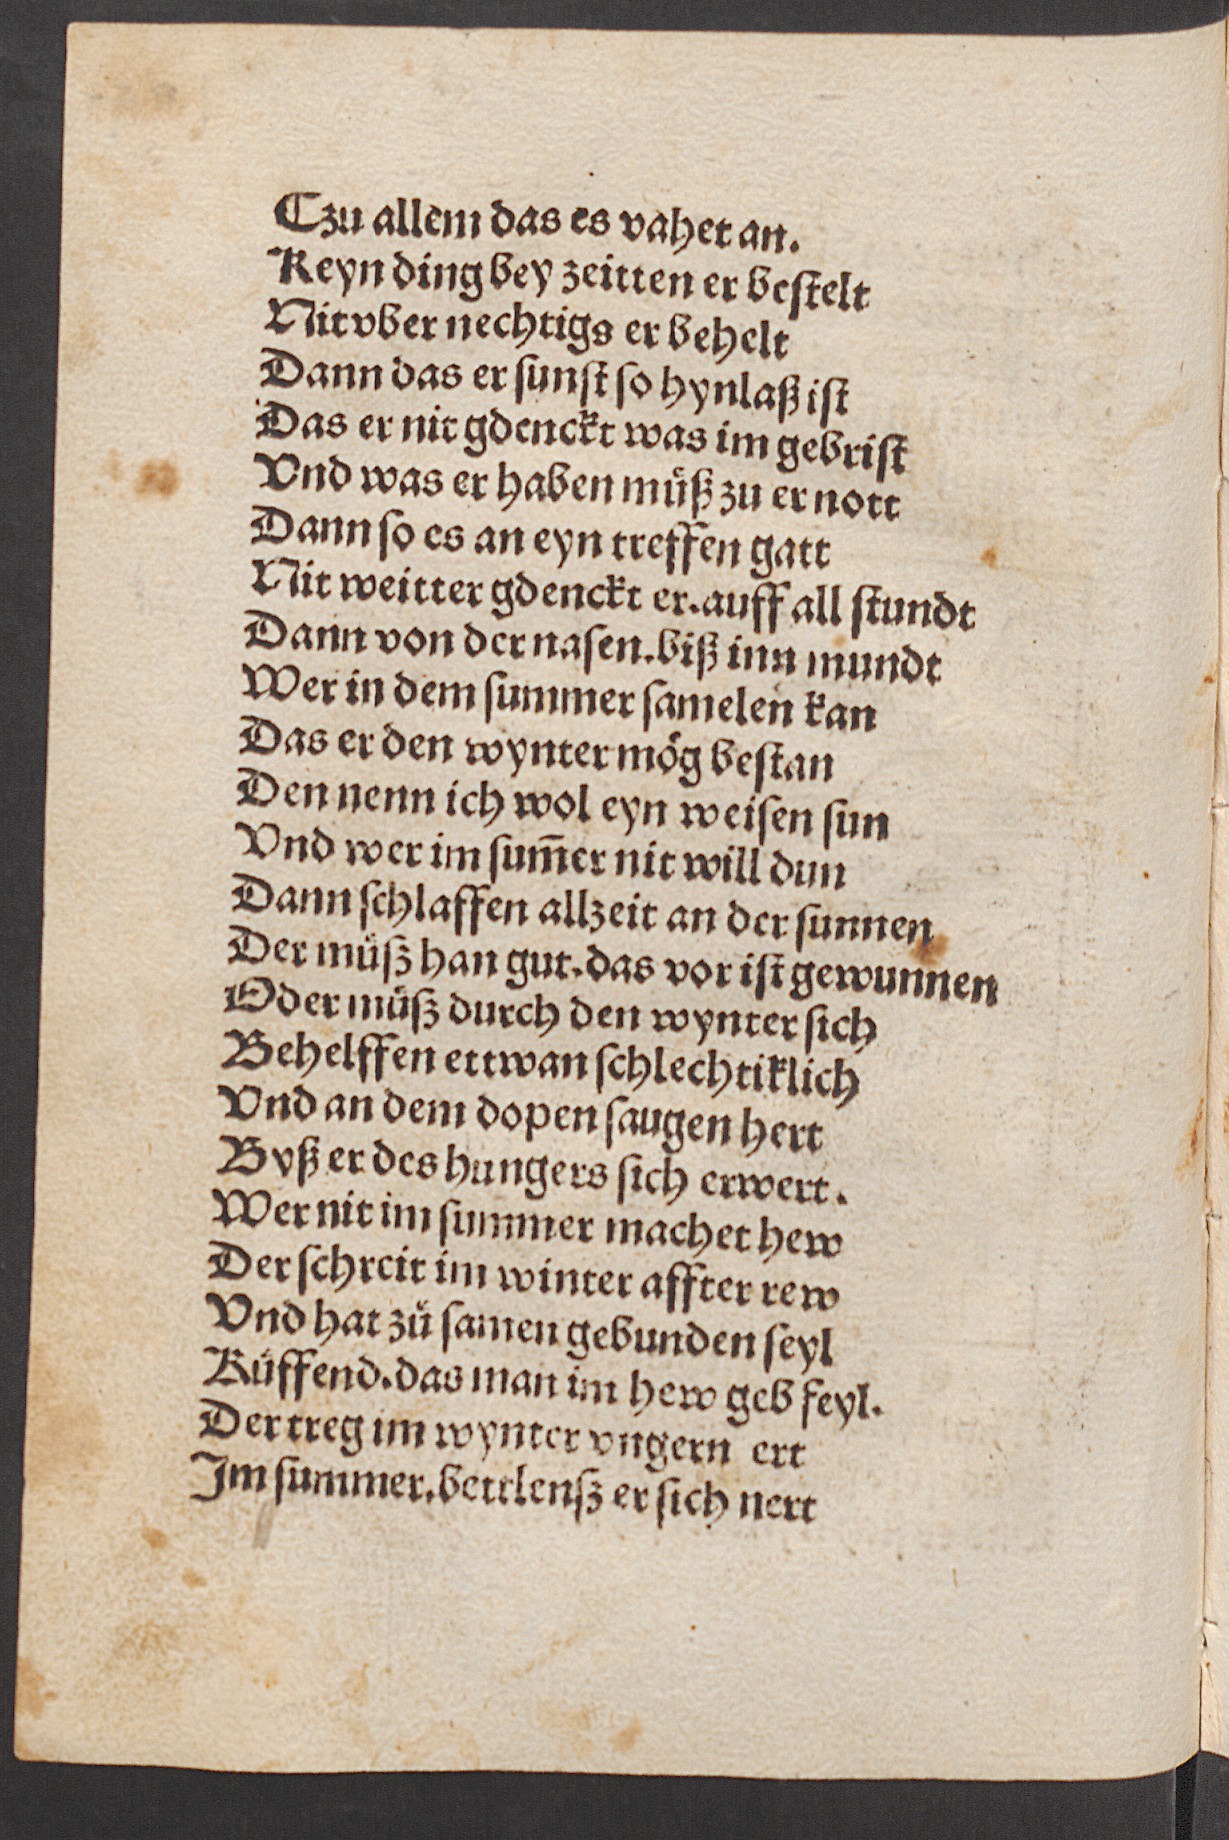 Czu allem das es vahet an.
Keyn ding bey zeitten er beſtelt
Nit vber nechtigs er behelt
Dann das er ſunſt ſo hynlaß iſt
Das er nit gdenckt was im gebriſt
Vnd was er haben müſz zu er nott
Dann ſo es an eyn treffen gatt
Nit weitter gdenckt er. auff all ſtundt
Dann von der naſen. biß inn mundt
Wer in dem ſummer ſamelen kan
Das er den wynter mög beſtan
Den nenn ich wol eyn weiſen ſun
Vnd wer im sum̄er nit will dun
Dann ſchlaffen allzeit an der ſunnen
Der müſz han gut. das vor iſt gewunnen
Oder müſz durch den wynter ſich
Behelffen ettwan ſchlechtiklich
Vnd an dem dopen ſaugen hert
Byß er des hungers ſich erwert.
Wer nit im ſummer machet hew
Der ſchreit im winter affter rew
Vnd hat zů ſamen gebunden ſeyl
Rüffend. das man im hew geb feyl.
Der treg im wynter vngern ert
Im ſummer. bettlenſz er ſich nert